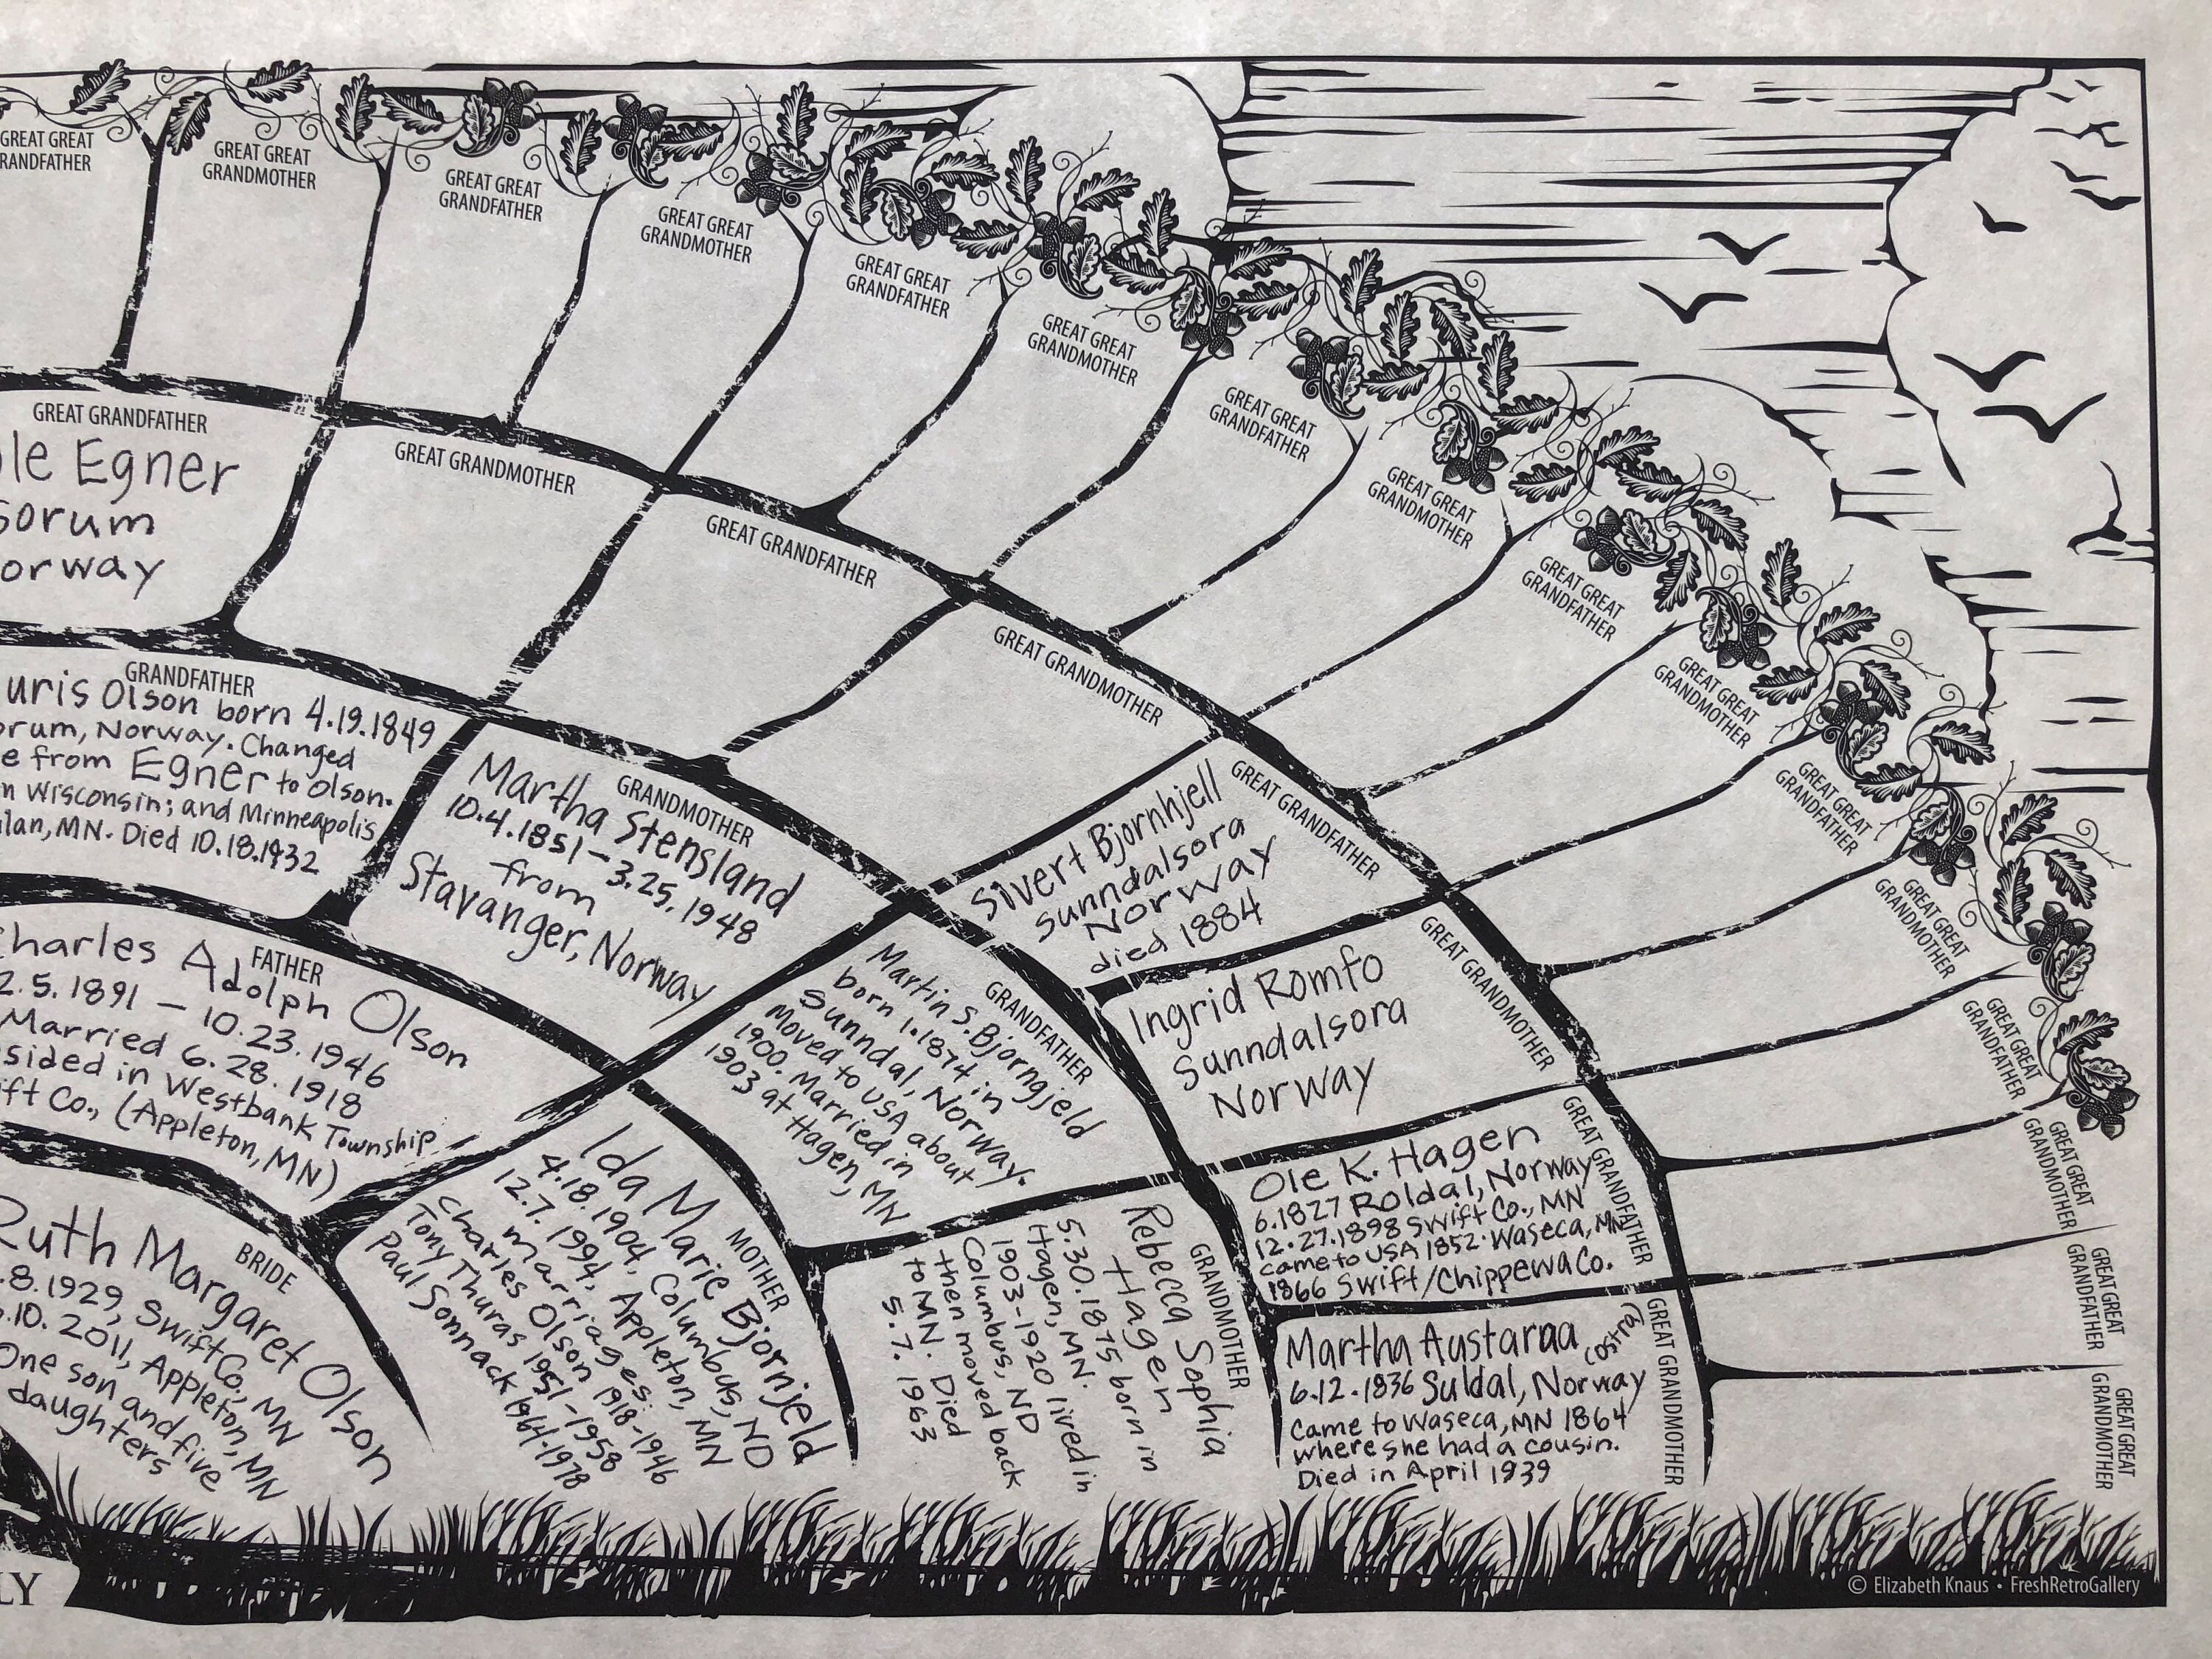 GREAT GREAT
GREAT GREAT
GRANDMOTHER
GREAT GREAT
GRANDFATHER
GREAT GREAT
GRANDMOTHER
GREAT GREAT
GRANDFATHER
GREAT GREAT
GRANDMOTHER
GREAT GREAT
GRANDFATHER
GREAT GREAT
GRANDMOTHER
GREAT GREAT
GRANDFATHER
GREAT GREAT
GRANDMOTHER
GREAT GREAT
GRANDFATHER
GREAT GREAT
GRANDMOTHER
GREAT GREAT
GRANDFATHER
GREAT GREAT
GRANDMOTHER
GREAT GREAT
GRANDFATHER
GREAT GREAT
GRANDMOTHER
GREAT GRANDFATHER
Egner
GREAT GRANDMOTHER
GREAT GRANDFATHER
GREAT GRANDMOTHER
GREAT GRANDFATHER
Sivert Bjornhjell
Sunndalsora
Norway
died 1884
GREAT GRANDMOTHER
Ingrid Romfo
Sunndalsora
Norway
GREAT GRANDFATHER
Ole K. Hagen
6.1827 Roldal, Norway
12.27.1898 Swift Co., MN
came to USA 1852. Waseca, MN
1866 Swift/Chippewa Co.
GREAT GRANDMOTHER
Martha Austaraa
(Ostra)
6.12.1836 Suldal, Norway
Came to Waseca, MN 1864
where she had a cousin.
Died in April 1939
GRANDFATHER
Olson born 4.19.1849
Norway. Changed
from Egner to Olson.
Wisconsin; and Minneapolis
MN. Died 10.18.1932
GRANDMOTHER
Martha Stensland
10.4.1851-3.25.1948
from
Stavanger, Norway
GRANDFATHER
Martin S. Bjorngjeld
born 1.1874 in
Sunndal, Norway.
Moved to USA about
1900. Married in
1903 at Hagen, MN
GRANDMOTHER
Rebecca Sophia
Hagen
5.30.1875 born in
Hagen, MN.
1903-1920 lived in
Columbus, ND
then moved back
to MN. Died
5.7.1963
FATHER
Charles Adolph Olson
2.5.1891 - 10.23.1946
Married 6.28.1918
in Westbank Township
Co., (Appleton, MN)
MOTHER
Ida Marie Bjornjeld
4.18.1904, Columbus, ND
12.7.1994, Appleton, MN
marriages:
Charles Olson 1918-1946
Tony Thuras 1951-1958
Paul Sonnack 1964-1978
BRIDE
Ruth Margaret Olson
8.1929, Swift Co., MN
10.2011, Appleton, MN
One son and five
daughters
© Elizabeth Knaus • FreshRetroGallery